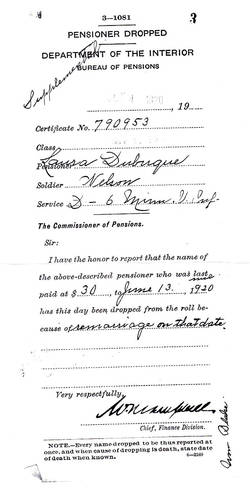 3—1081
3
PENSIONER DROPPED
DEPARTMENT OF THE INTERIOR
BUREAU OF PENSIONS
Supplemental
1920, 19
Certificate No. 790953
Class
Pensioner Laura Dubuque
Soldier Nelson
Service D - 6 Minn. V. Inf.
The Commissioner of Pensions.
Sir:
I have the honor to report that the name of
the above-described pensioner who was last
paid at $ 30, to June 13, 1920
has this day been dropped from the roll be-
cause of remarriage on that date.
Very respectfully,
Chief, Finance Division.
NOTE.—Every name dropped to be thus reported at
once, and when cause of dropping is death, state date
of death when known.